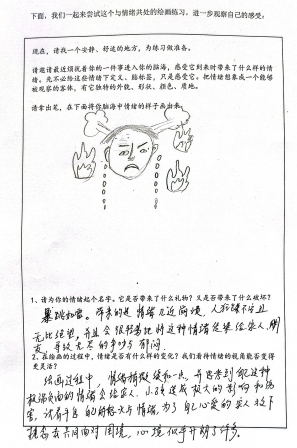 下面，我们一起来尝试这个与情绪共处的绘画练习，进一步观察自己的感受：
现在，请找一个安静、舒适的地方，为练习做准备。
请邀请最近烦扰着你的一件事进入你的脑海，感受它到来时带来了什么样的情
绪。先不必给这些情绪下定义、贴标签，只是感受它。把情绪想象成一个能够
被观察的客体，有它独特的外貌、形状、颜色、质地。
请拿出笔，在下面将你脑海中情绪的样子画出来。
1、请为你的情绪起个名字。它是否带来了什么礼物？又是否带来了什么破坏？
暴跳如雷。带来的是情绪几近崩溃，
无比绝望，并且会很轻易地将这种情绪传染给家人、朋
友，导致无尽的争吵与郁闷。
2、在绘画的过程中，情绪是否有什么样的变化？我们看待情绪的视角能否变得
更灵活？
绘画过程中，情绪稍稍缓和一点，并思考到把这种
极端负面的情绪会给家人、小孩造成极大的影响和伤
害，试着平息自己的极大情绪，为了自己心爱的家人放下
去共同面对困境，心境似乎开朗了许多。